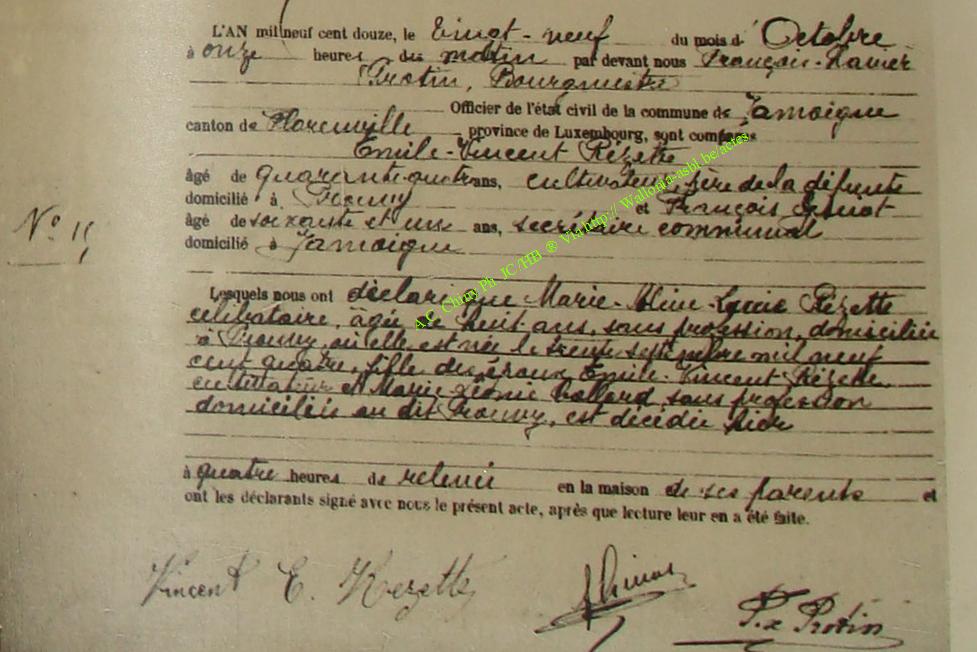 L'AN mil neuf cent douze, le Vingt-neuf du mois d' Octobre
à onze heures du matin par devant nous François-Xavier
Protin, Bourgmestre
Officier de l'état civil de la commune de Jamoigne
canton de Florenville province de Luxembourg, sont comparus
Emile-Vincent Rézette
âgé de quarante-quatre ans, cultivateur, père de la défunte
domicilié à Prouvy et François
âgé de soixante et un ans, secrétaire communal
domicilié à Jamoigne
N° 15
Lesquels nous ont déclaré que Marie-Aline-Lucie Rézette
célibataire, âgée de huit ans, sans profession, domiciliée
à Prouvy, où elle est née le trente septembre mil neuf
cent quatre, fille des époux Emile-Vincent Rézette,
cultivateur et Marie-Léonie Collard, sans profession
domiciliés au dit Prouvy, est décédée hier
à quatre heures de relevée en la maison de ses parents et
ont les déclarants signé avec nous le présent acte, après que lecture leur en a été faite.
Vincent E. Rezette
F. x Protin
A.C. Chiny Ph JC/HB ® Via http:// Wallonia-asbl.be/actes